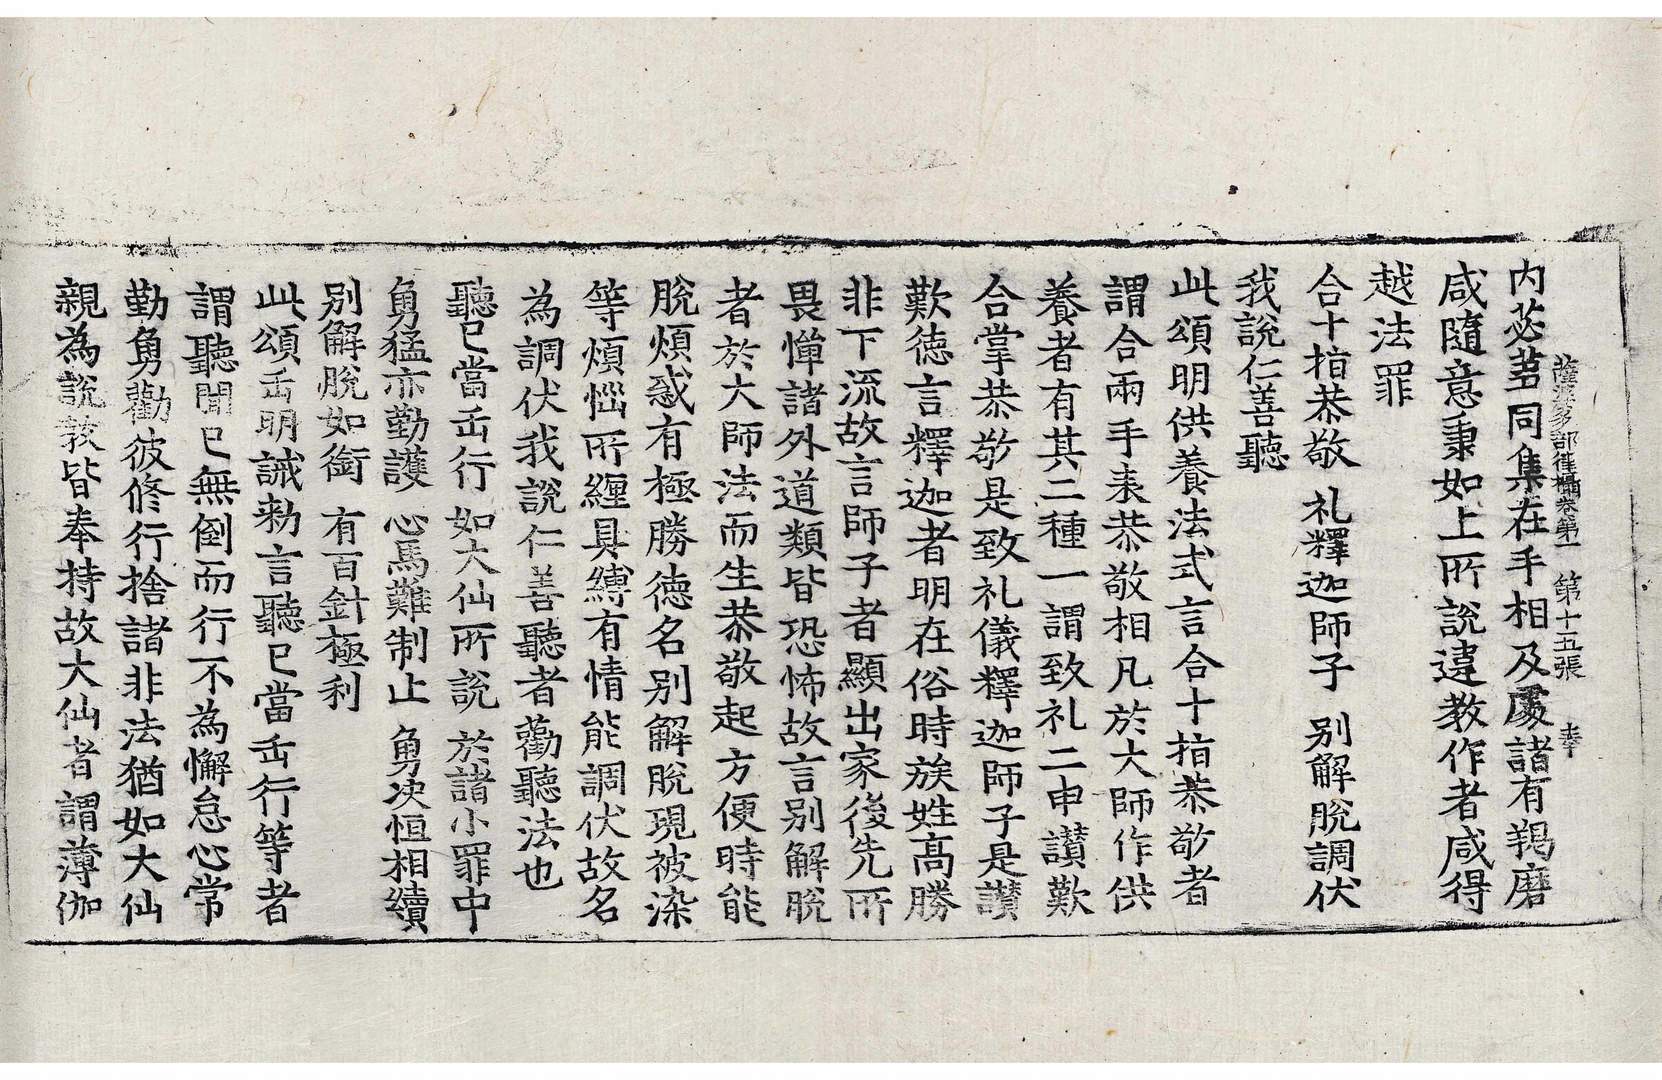 薩婆多部律攝卷第一 第十五張 幸
內苾芻同集在手相及處諸有羯磨
咸隨意秉如上所說違教作者咸得
越法罪
合十指恭敬 礼釋迦師子 別解脫調伏
我說仁善聽
此頌明供養法式言合十指恭敬者
謂合兩手表恭敬相凡於大師作供
養者有其二種一謂致礼二申讃歎
合掌恭敬是致礼儀釋迦師子是讃
歎德言釋迦者明在俗時族姓高勝
非下流故言師子者顯出家後先所
畏憚諸外道類皆恐怖故言別解脫
者於大師法而生恭敬起方便時能
脫煩惑有極勝德名別解脫現被染
等煩惱所纏具縛有情能調伏故名
為調伏我說仁善聽者勸聽法也
聽已當正行 如大仙所說 於諸小罪中
勇猛亦勤護 心馬難制止 勇決恒相續
別解脫如銜 有百針極利
此頌正明誡勑言聽已當正行等者
謂聽聞已無倒而行不為懈怠心常
勤勇勸彼修行捨諸非法猶如大仙
親為說教皆奉持故大仙者謂薄伽